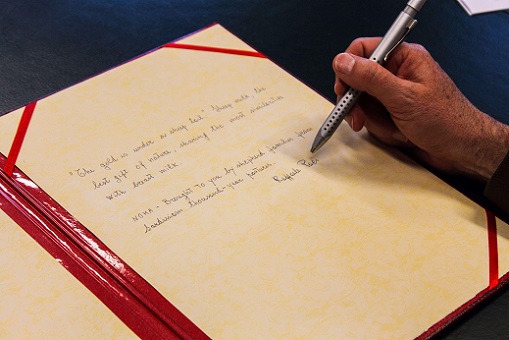 "The gold is under a sheep tail." Sheep milk, the
best gift of nature, showing the most similarities
with breast milk
NOMA - Brought to you by shepherd families from
Sardinian thousand-year pastures